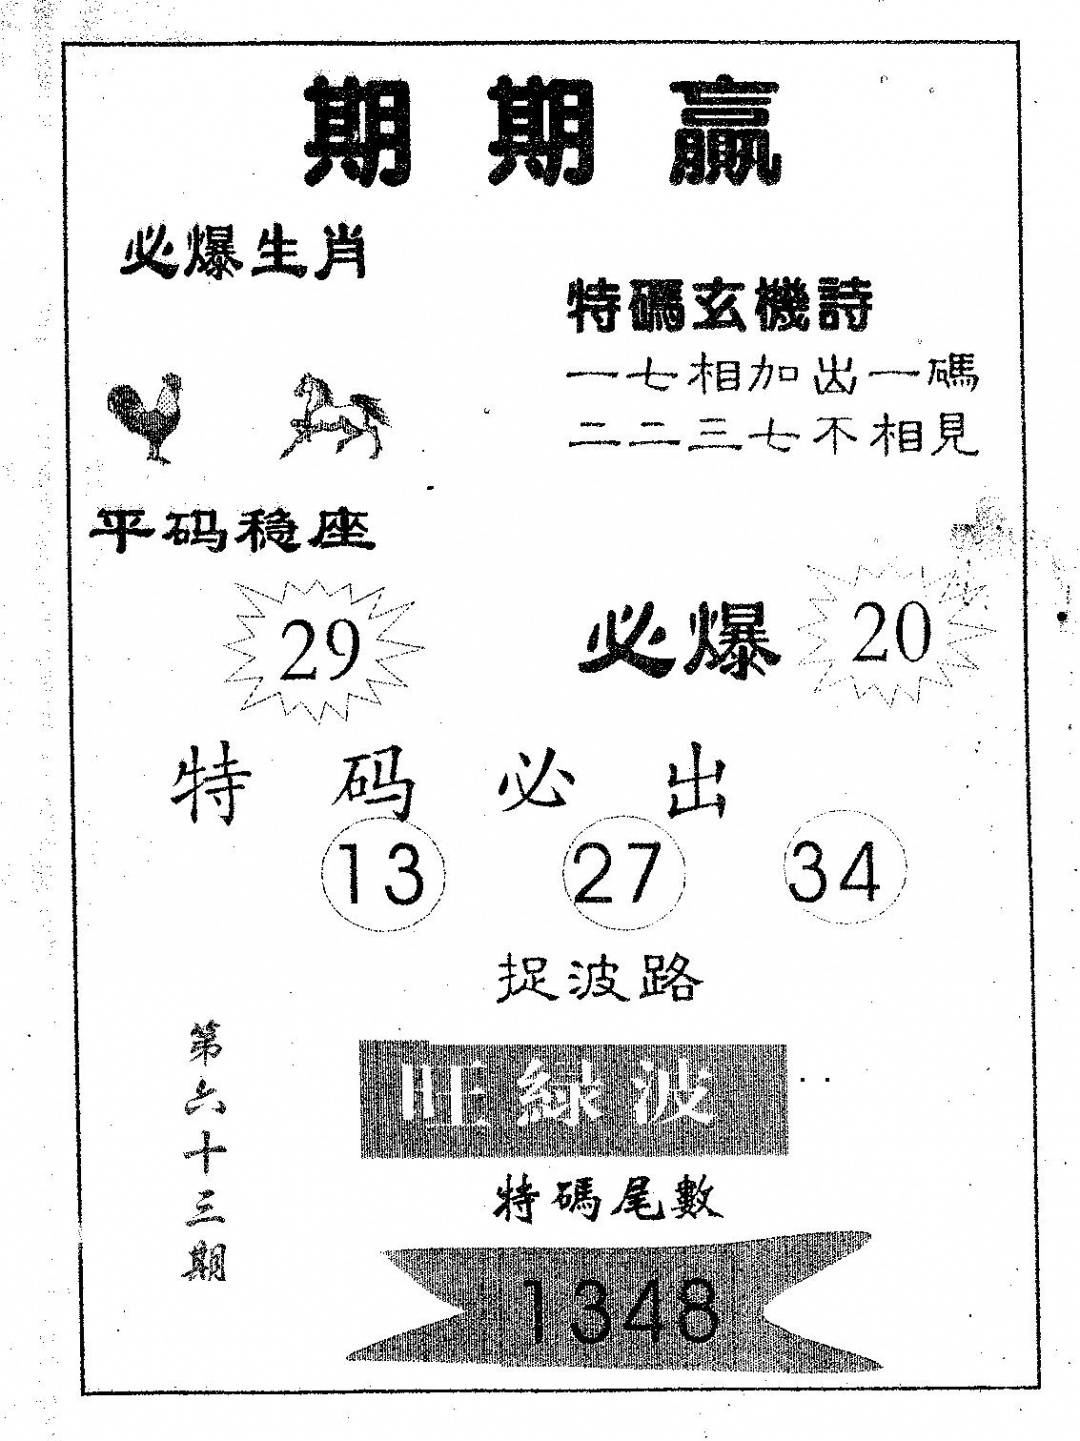 期期贏
必爆生肖
特碼玄機詩
一七相加出一碼
二二三七不相見
平码稳座
29
必爆 20
特码必出
13 27 34
捉波路
旺綠波
特碼尾數
1348
第六十三期